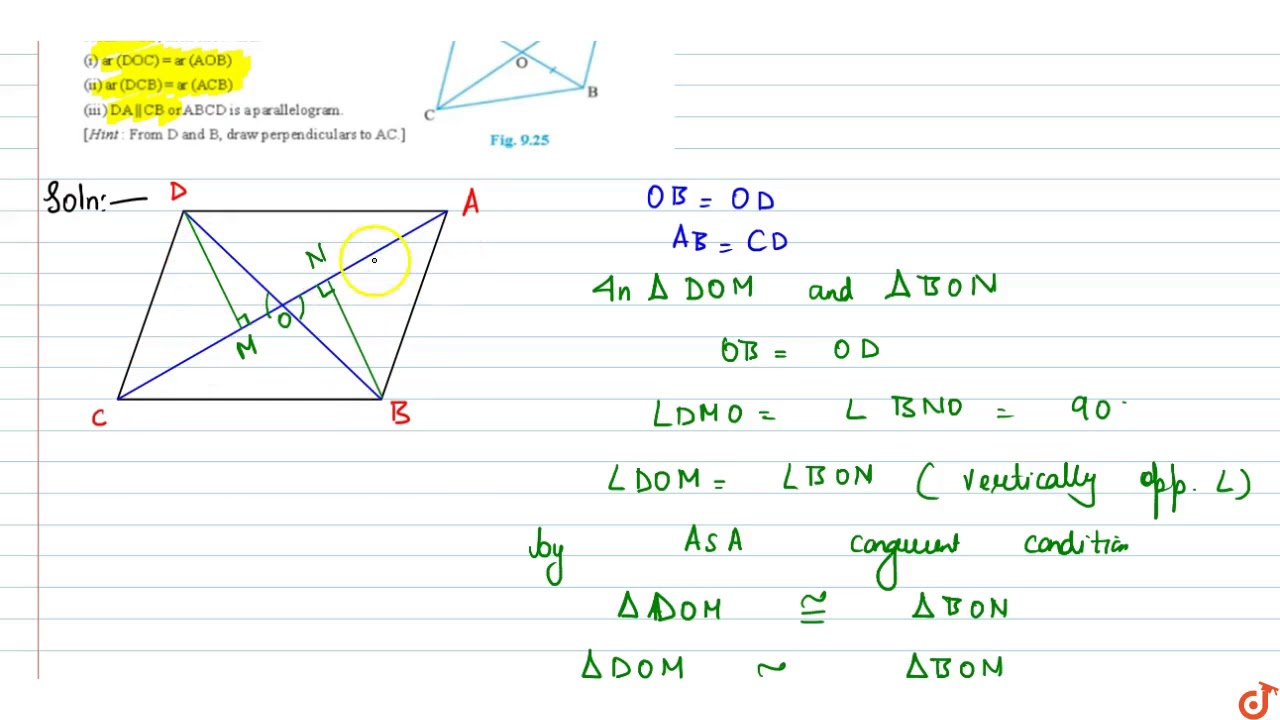 (i) ar (DOC) = ar (AOB)
(ii) ar (DCB) = ar (ACB)
(iii) DA || CB or ABCD is a parallelogram.
[Hint : From D and B, draw perpendiculars to AC.]
O
B
C
Fig. 9.25
Soln:—
D
A
N
O
M
C
B
OB = OD
AB = CD
In Δ DOM and Δ BON
OB = OD
∠DMO = ∠ BNO = 90°
∠DOM = ∠BON ( vertically opp. ∠)
by ASA congruent condition
Δ DOM ≅ Δ BON
Δ DOM ~ Δ BOM